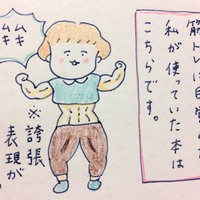 筋トレは自
私が使っていた本は
こちらです。
ムキ
ムキ
※誇張
表現が